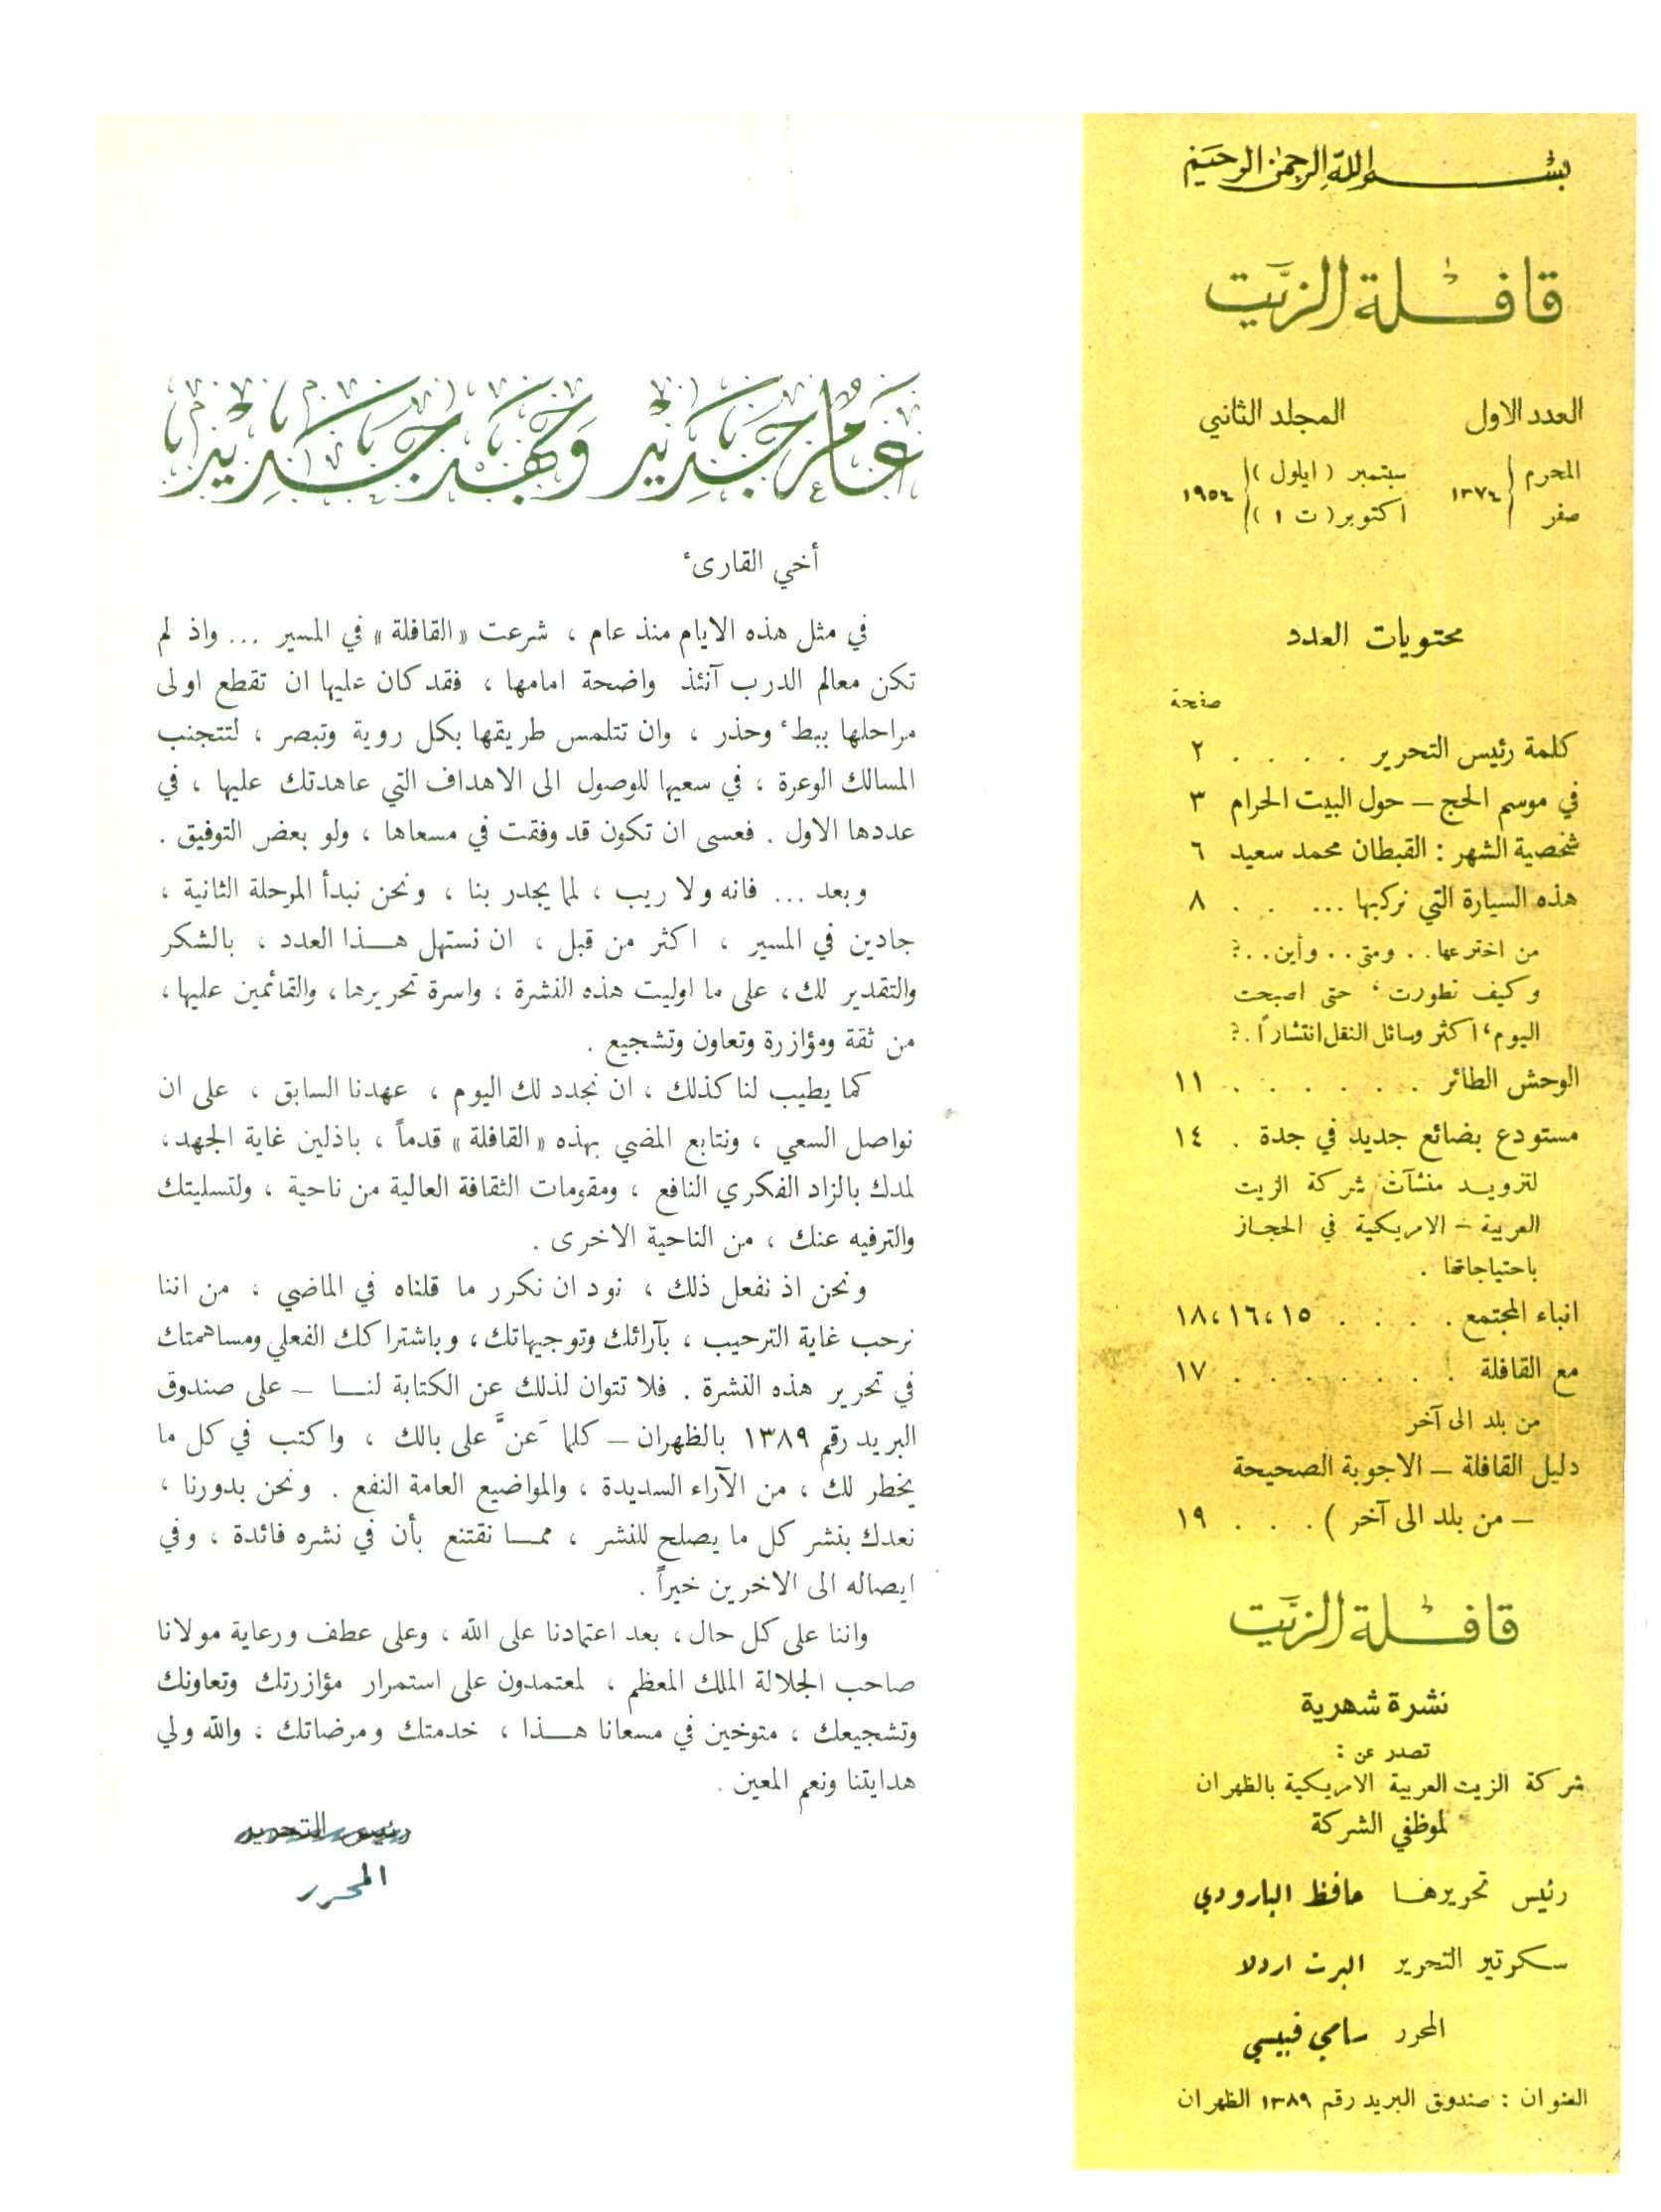 بسم الله الرحمن الرحيم
قافلة الزيت
العدد الاول المجلد الثاني
المحرم صفر ١٣٧٤ سبتمبر ( ايلول ) اكتوبر ( ت ١ ) ١٩٥٤
محتويات العدد
صفحة
كلمة رئيس التحرير . . . . ٢
في موسم الحج – حول البيت الحرام ٣
شخصية الشهر : القبطان محمد سعيد ٦
هذه السيارة التي نركبها ... . . ٨
من اخترعها . . ومتى . . وأين . . ?
وكيف تطورت ، حتى اصبحت
اليوم ، اكثر وسائل النقل انتشاراً . ?
الوحش الطائر . . . . . . ١١
مستودع بضائع جديد في جدة . ١٤
لتزويد منشآت شركة الزيت
العربية – الامريكية في الحجاز
باحتياجاتها .
انباء المجتمع . . . . ١٥ ، ١٦ ، ١٨
مع القافلة . . . . . . . ١٧
من بلد الى آخر
دليل القافلة – الاجوبة الصحيحة
– من بلد الى آخر ) . . . ١٩
قافلة الزيت
نشرة شهرية
تصدر عن :
شركة الزيت العربية الامريكية بالظهران
لموظفي الشركة
رئيس تحريرها حافظ البارودي
سكرتير التحرير البرت اردلا
المحرر سامي قبيسي
العنوان : صندوق البريد رقم ١٣٨٩ الظهران
عام جديد وجهد جديد
أخي القارىء
في مثل هذه الايام منذ عام ، شرعت « القافلة » في المسير ... واذ لم
تكن معالم الدرب آنئذ واضحة امامها ، فقد كان عليها ان تقطع اولى
مراحلها ببطء وحذر ، وان تتلمس طريقها بكل روية وتبصر ، لتتجنب
المسالك الوعرة ، في سعيها للوصول الى الاهداف التي عاهدتك عليها ، في
عددها الاول . فعسى ان تكون قد وفقت في مسعاها ، ولو بعض التوفيق .
وبعد ... فانه ولا ريب ، لما يجدر بنا ، ونحن نبدأ المرحلة الثانية ،
جادين في المسير ، اكثر من قبل ، ان نستهل هذا العدد ، بالشكر
والتقدير لك ، على ما اوليت هذه النشرة ، واسرة تحريرها ، والقائمين عليها ،
من ثقة ومؤازرة وتعاون وتشجيع .
كما يطيب لنا كذلك ، ان نجدد لك اليوم ، عهدنا السابق ، على ان
نواصل السعي ، ونتابع المضي بهذه « القافلة » قدماً ، باذلين غاية الجهد ،
لمدك بالزاد الفكري النافع ، ومقومات الثقافة العالية من ناحية ، ولتسليتك
والترفيه عنك ، من الناحية الاخرى .
ونحن اذ نفعل ذلك ، نود ان نكرر ما قلناه في الماضي ، من اننا
نرحب غاية الترحيب ، بآرائك وتوجيهاتك ، وباشتراكك الفعلي ومساهمتك
في تحرير هذه النشرة . فلا تتوان لذلك عن الكتابة لنا – على صندوق
البريد رقم ١٣٨٩ بالظهران – كلما عَنَّ على بالك ، واكتب في كل ما
يخطر لك ، من الآراء السديدة ، والمواضيع العامة النفع . ونحن بدورنا ،
نعدك بنشر كل ما يصلح للنشر ، مما نقتنع بأن في نشره فائدة ، وفي
ايصاله الى الاخرين خيراً .
واننا على كل حال ، بعد اعتمادنا على الله ، وعلى عطف ورعاية مولانا
صاحب الجلالة الملك المعظم ، لمعتمدون على استمرار مؤازرتك وتعاونك
وتشجيعك ، متوخين في مسعانا هذا ، خدمتك ومرضاتك ، والله ولي
هدايتنا ونعم المعين .
رئيس التحرير
المحرر